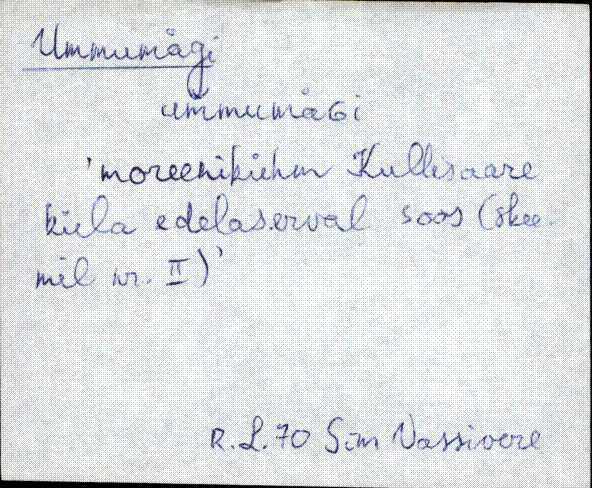 Ummumägi
ummumäGi
'moreenikühm Kullisaare
küla edelaserval soos (skee-
mil nr. II)'
R. L. 70 Sim Vassivere